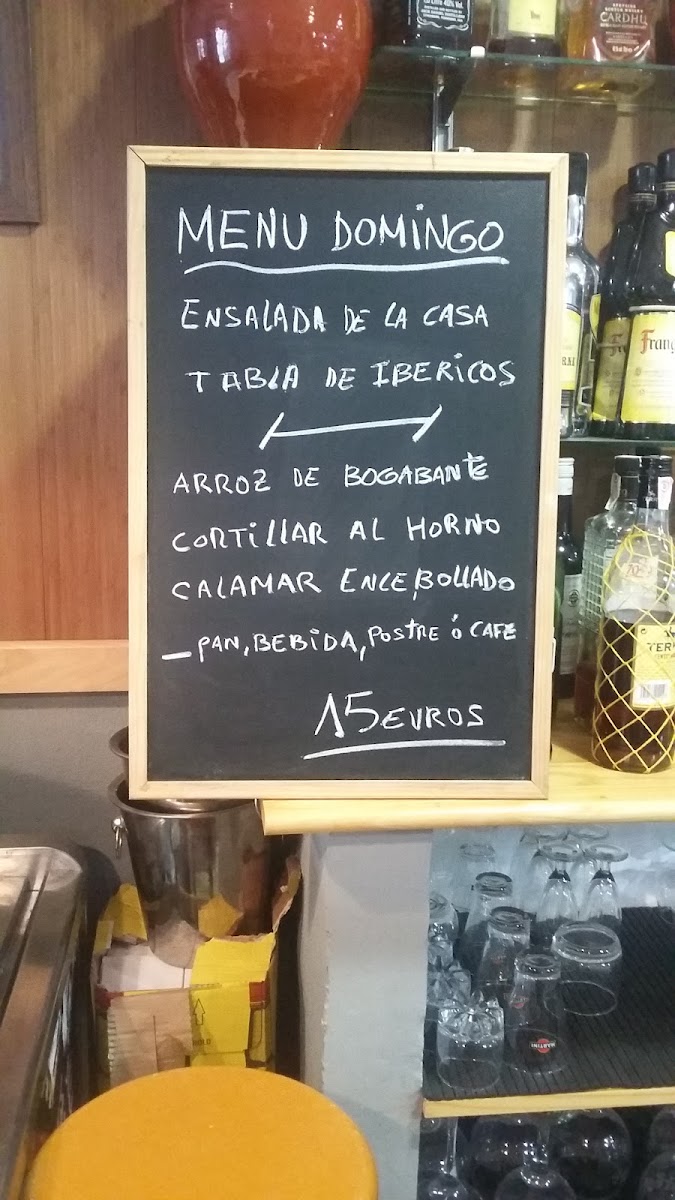 MENU DOMINGO
ENSALADA DE LA CASA
TABLA DE IBERICOS
ARROZ DE BOGABANTE
CORTILLAR AL HORNO
CALAMAR ENCEBOLLADO
_ PAN, BEBIDA, POSTRE ó CAFE
15 EUROS
CARDHU
Frang
MARTINI